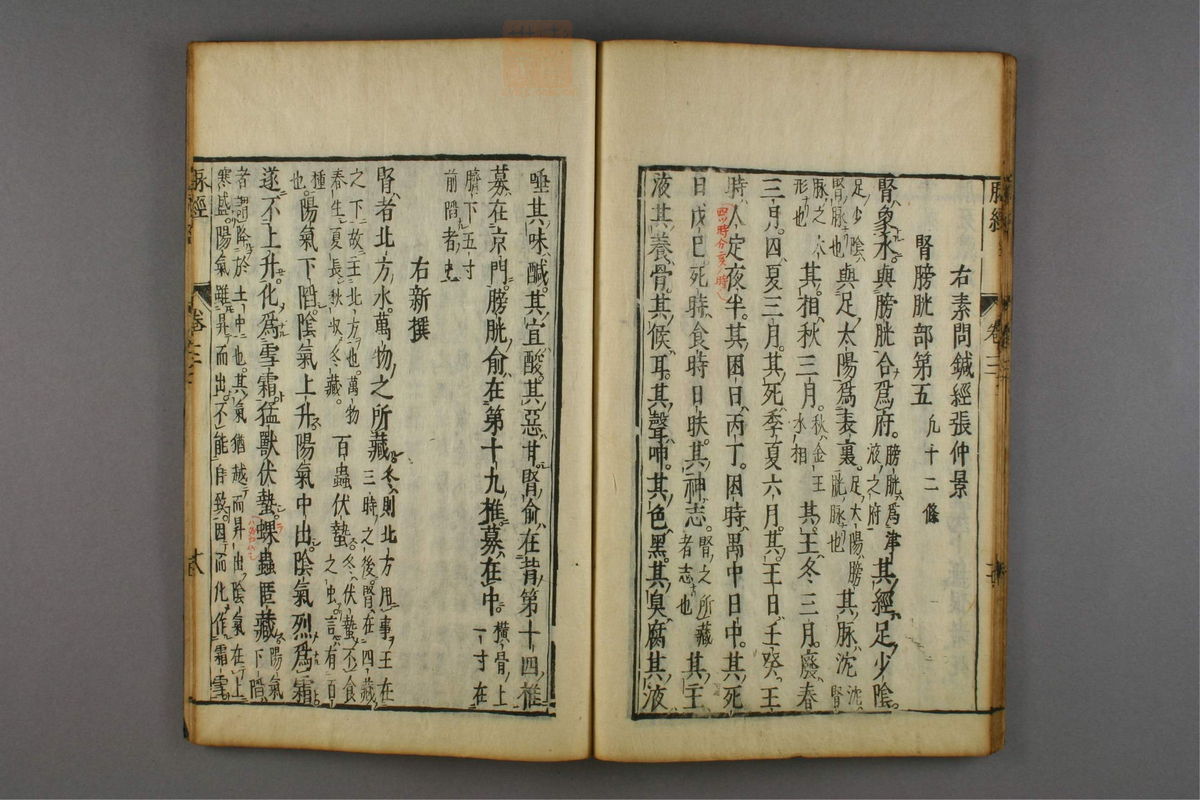 右素問鍼經張仲景
腎膀胱部第五 九十二條
腎象水。與膀胱合爲府。膀胱爲津液之府 其經足少陰。
足少陰腎脉也 與足太陽爲表裏。足太陽膀胱脉也 其脉沈 沈腎
脉之形也 其相秋三月。秋金王水相 其王冬三月。廢春
三月。囚夏三月。其死季夏六月。其王日壬癸。王
時人定夜半。其困日丙丁。困時禺中日中。其死
日戊己。死時食時日昳。其神志。腎之所藏者志也 其主
液。其養骨。其候耳。其聲呻。其色黑。其臭腐。其液
唾。其味鹹。其宜酸。其惡甘。腎俞在背第十四椎
募在京門。膀胱俞在第十九椎。募在中 橫骨上一寸在
臍下五寸前陷者
右新撰
腎者北方水。萬物之所藏。冬則北方用事王在三時之後腎在四藏
之下故王北方也。萬物春生夏長秋收冬藏。 百蟲伏蟄。冬伏蟄不食之虫。言有百種
也。 陽氣下陷。陰氣上升。陽氣中出。陰氣烈爲霜。
遂不上升。化爲雪霜。猛獸伏蟄。蜾蟲匿藏。陽氣下陷
者謂降於土中也。其氣猶越而昇出陰氣在上
寒盛。陽氣雖昇而出。不能自致。因而化作霜雪
脉經 卷三